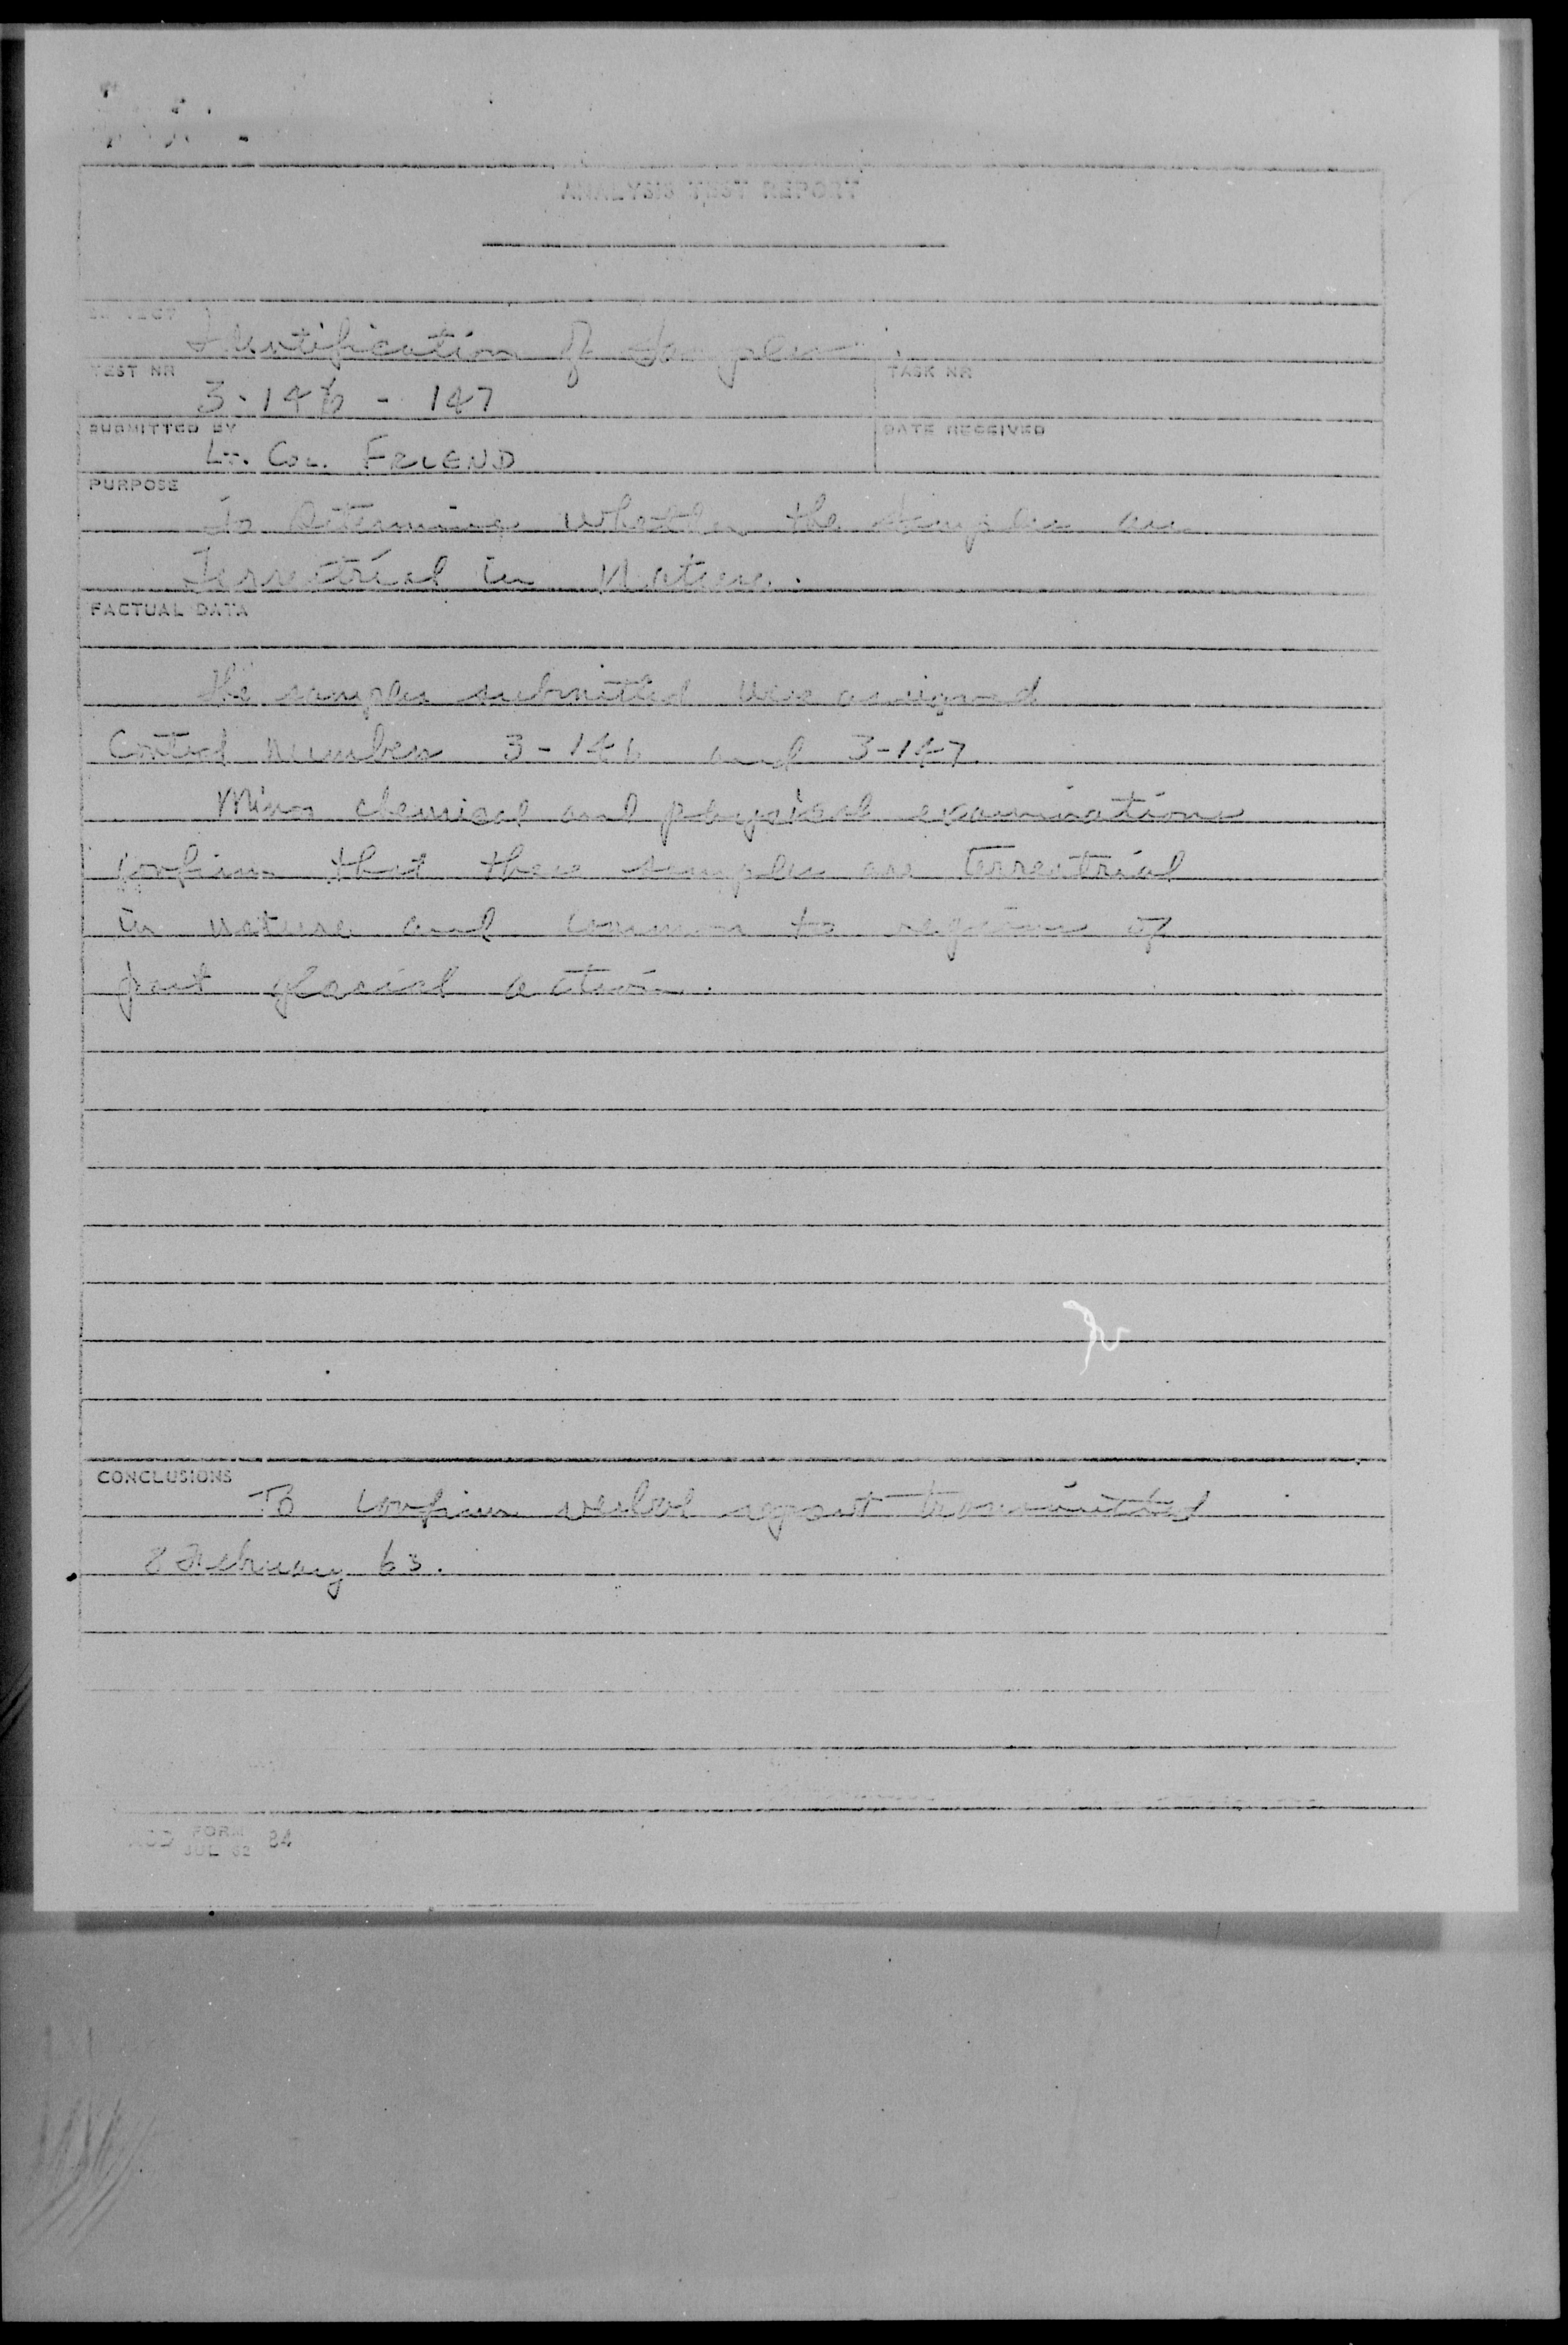 ANALYSIS TEST REPORT
SUBJECT
Identification of Samples
TEST NR
TASK NR
3-146 - 147
SUBMITTED BY
DATE RECEIVED
Lt. Col. FRIEND
PURPOSE
To Determine whether the samples are
Terrestrial in Nature.
FACTUAL DATA
The samples submitted were assigned
Control Numbers 3-146 and 3-147.
Minor chemical and physical examinations
confirm that these samples are terrestrial
in nature and common to regions of
past glacial action.
CONCLUSIONS
To confirm verbal report transmitted
8 February 63.
FORM
JUL 62
84